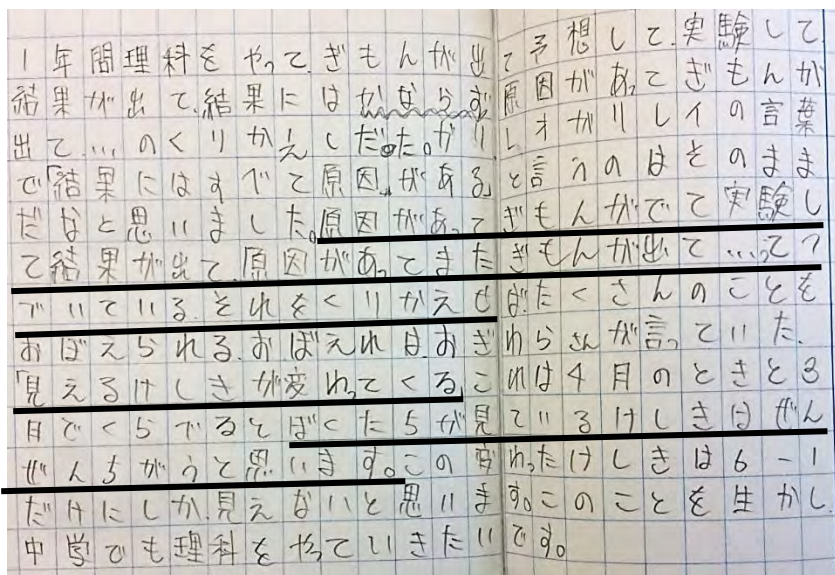 1年間理科をやって、ぎもんが出て予想して、実験して、
結果が出て、結果にはかならず原因があってぎもんが
出て、…のくりかえしだった。ガリレオガリレイの言葉
で「結果にはすべて原因がある」と言うのはそのまま
だなと思いました。原因があってぎもんがでて実験し
て結果が出て、原因があってまたぎもんが出て…ってつ
づいている。それをくりかえせばたくさんのことを
おぼえられる。おぼえればおぎわらさんが言っていた、
「見えるけしきが変わってくる」これは4月のときと3
月でくらべるとぼくたちが見ているけしきはぜん
ぜんちがうと思います。この変わったけしきは6-1
だけにしか見えないと思います。このことを生かし、
中学でも理科をやっていきたいです。